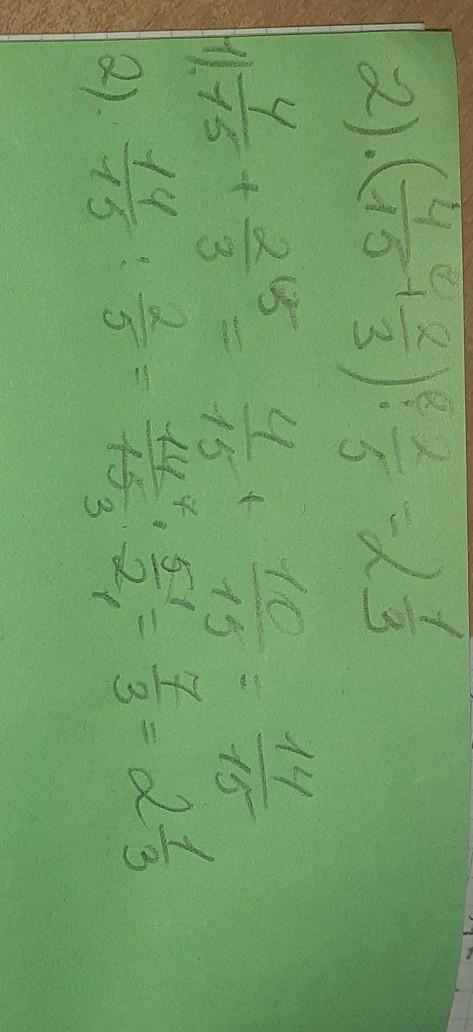 2). (4/15 + 2/3) : 2/5 = 2 1/3
1). 4/15 + 2/3 ⁵ = 4/15 + 10/15 = 14/15
2). 14/15 : 2/5 = 14⁷/15₃ · 5¹/2₁ = 7/3 = 2 1/3